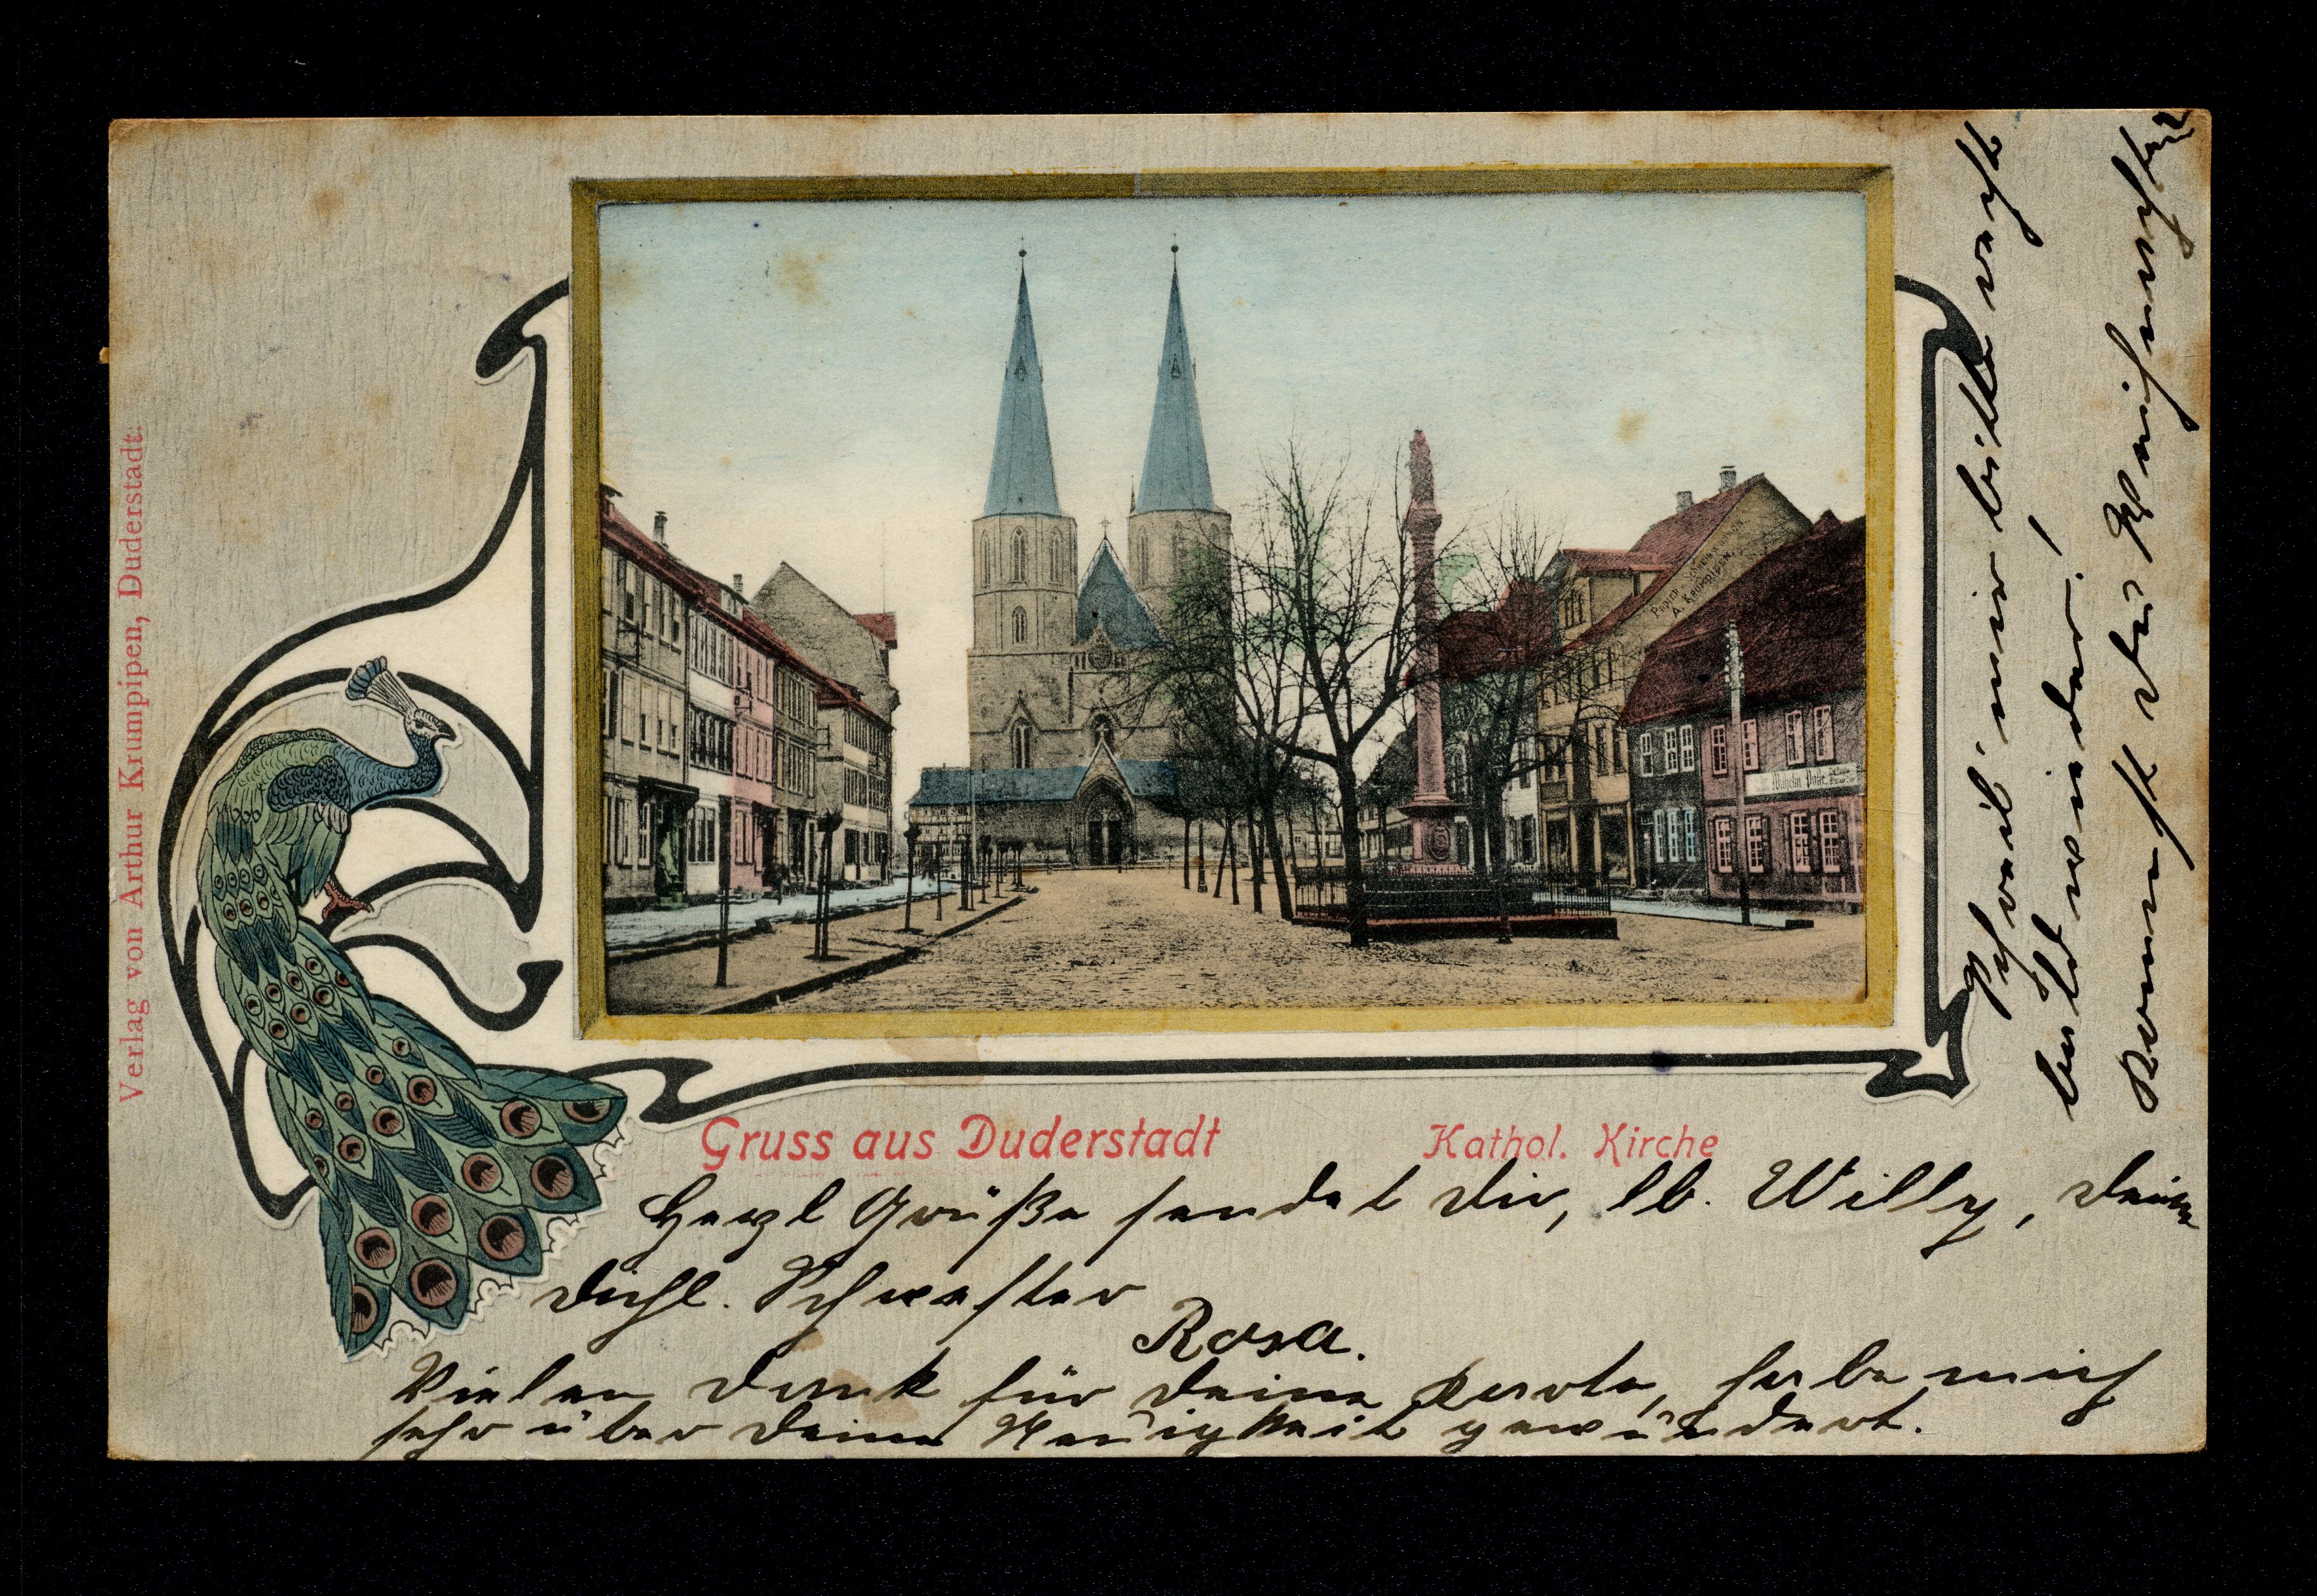 Verlag von Arthur Krumpipen, Duderstadt.
A. KRUMPIPEN.
Gruss aus Duderstadt
Kathol. Kirche
Herzl Grüße sendet dir, lb. Willy, deine
dichl. Schwester
Rosa.
Vielen Dank für deine Karte, habe mich
sehr über deine Neuigkeit gewundert.
Schreib' mir bitte recht
bald wieder!
Kommst du Weihnachten?